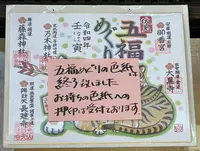 五福
めぐり
令和四年
壬寅
御香宮
藤森神社
乃木神社
大黒寺
長建寺
五福めぐりの色紙は
終了致しました
お持ちの色紙への
押印は受付ております